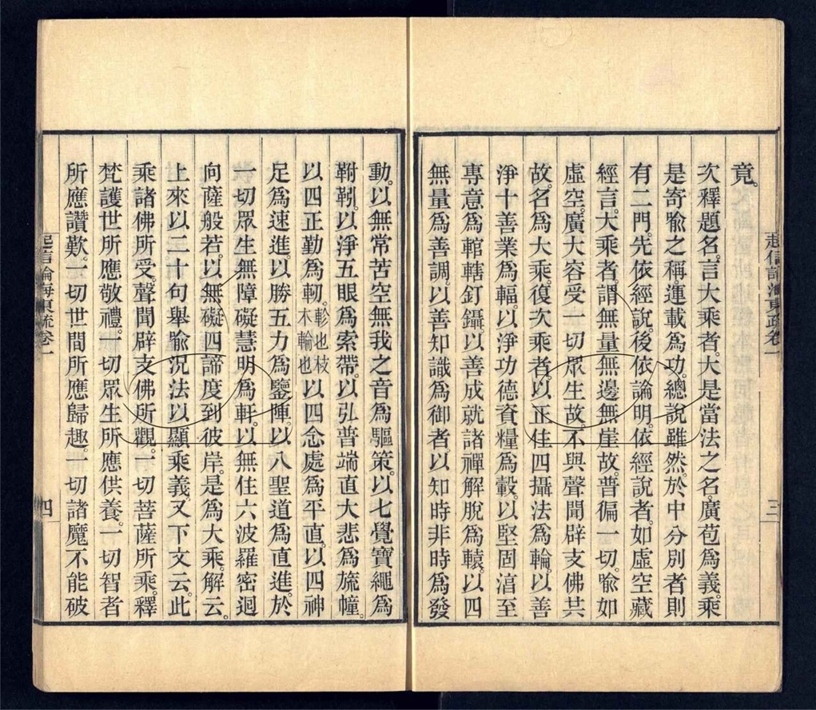 竟。
次釋題名。言大乘者。大是當法之名。廣苞爲義。乘
是寄喻之稱。運載爲功。總說雖然於中分別者則
有二門。先依經說。後依論明。依經說者。如虛空藏
經言。大乘者。謂無量無邊無崖故。普徧一切。喻如
虛空。廣大容受一切眾生故。不與聲聞辟支佛共
故。名爲大乘。復次乘者。以正住四攝法爲輪。以善
淨十善業爲輻。以淨功德資糧爲轂。以堅固淯至
專意爲輨轄釘鑷。以善成就諸禪解脫爲轅。以四
無量爲善調。以善知識爲御者。以知時非時爲發
起信論海東疏卷一
三
動。以無常苦空無我之音爲驅策。以七覺寶繩爲
靷。以淨五眼爲索帶。以弘普端直大悲爲旒幢。
以四正勤爲軔。軫也枝木輪也以四念處爲平直。以四神
足爲速進。以勝五力爲鑒陣。以八聖道爲直進。於
一切眾生無障礙慧明爲軒。以無住六波羅密迴
向薩般若。以無礙四諦度到彼岸。是爲大乘。解云。
上來以二十句舉喻況法。以顯乘義。又下文云。此
乘諸佛所受。聲聞辟支佛所觀。一切菩薩所乘。釋
梵護世所應敬禮。一切眾生所應供養。一切智者
所應讚歎。一切世間所應歸趣。一切諸魔不能破
起信論海東疏卷一
四